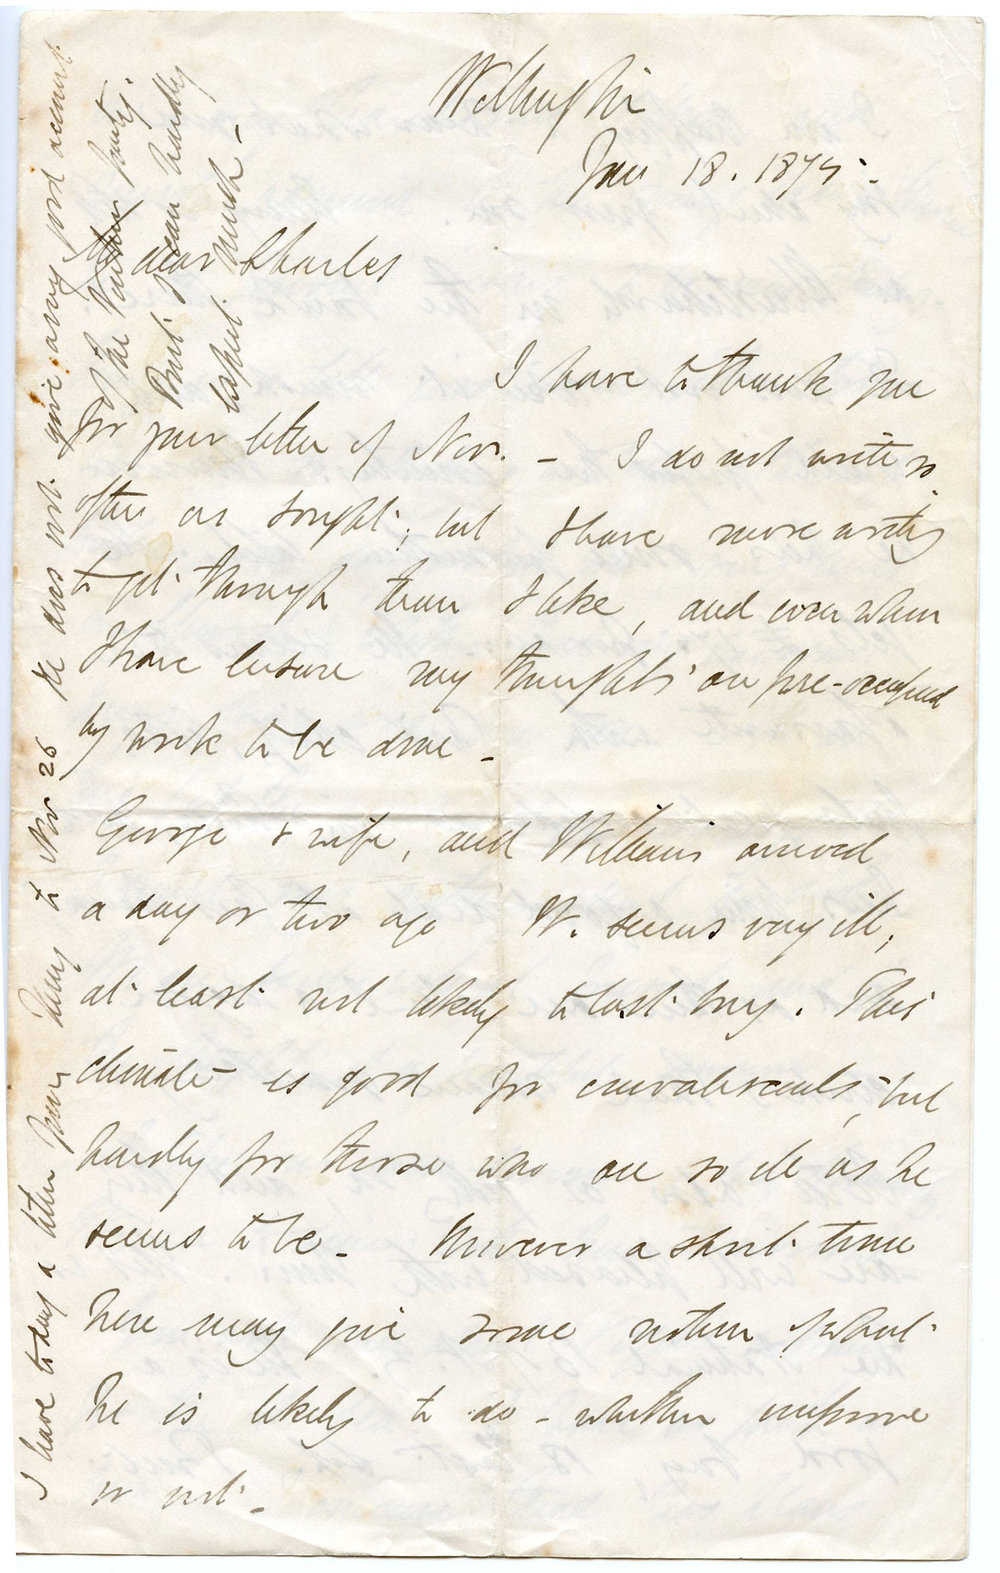 Wellington
Jan 18. 1875.
My dear Charles
I have to thank you
for your letter of Nov. - I do not write so
often as I ought, but I have more writing
to get through than I like, and even when
I have leisure my thoughts are pre-occupied
by work to be done -
George & wife, and William arrived
a day or two ago W. seems very ill,
at least not likely to last long. This
climate is good for convalescents, but
hardly for those who are so ill as he
seems to be - However a short time
here may give some notion of what
he is likely to do - whether improve
or not -
I have today a letter from to Nov 26 He does not give a very good account
of the party.
But you can hardly
expect much -